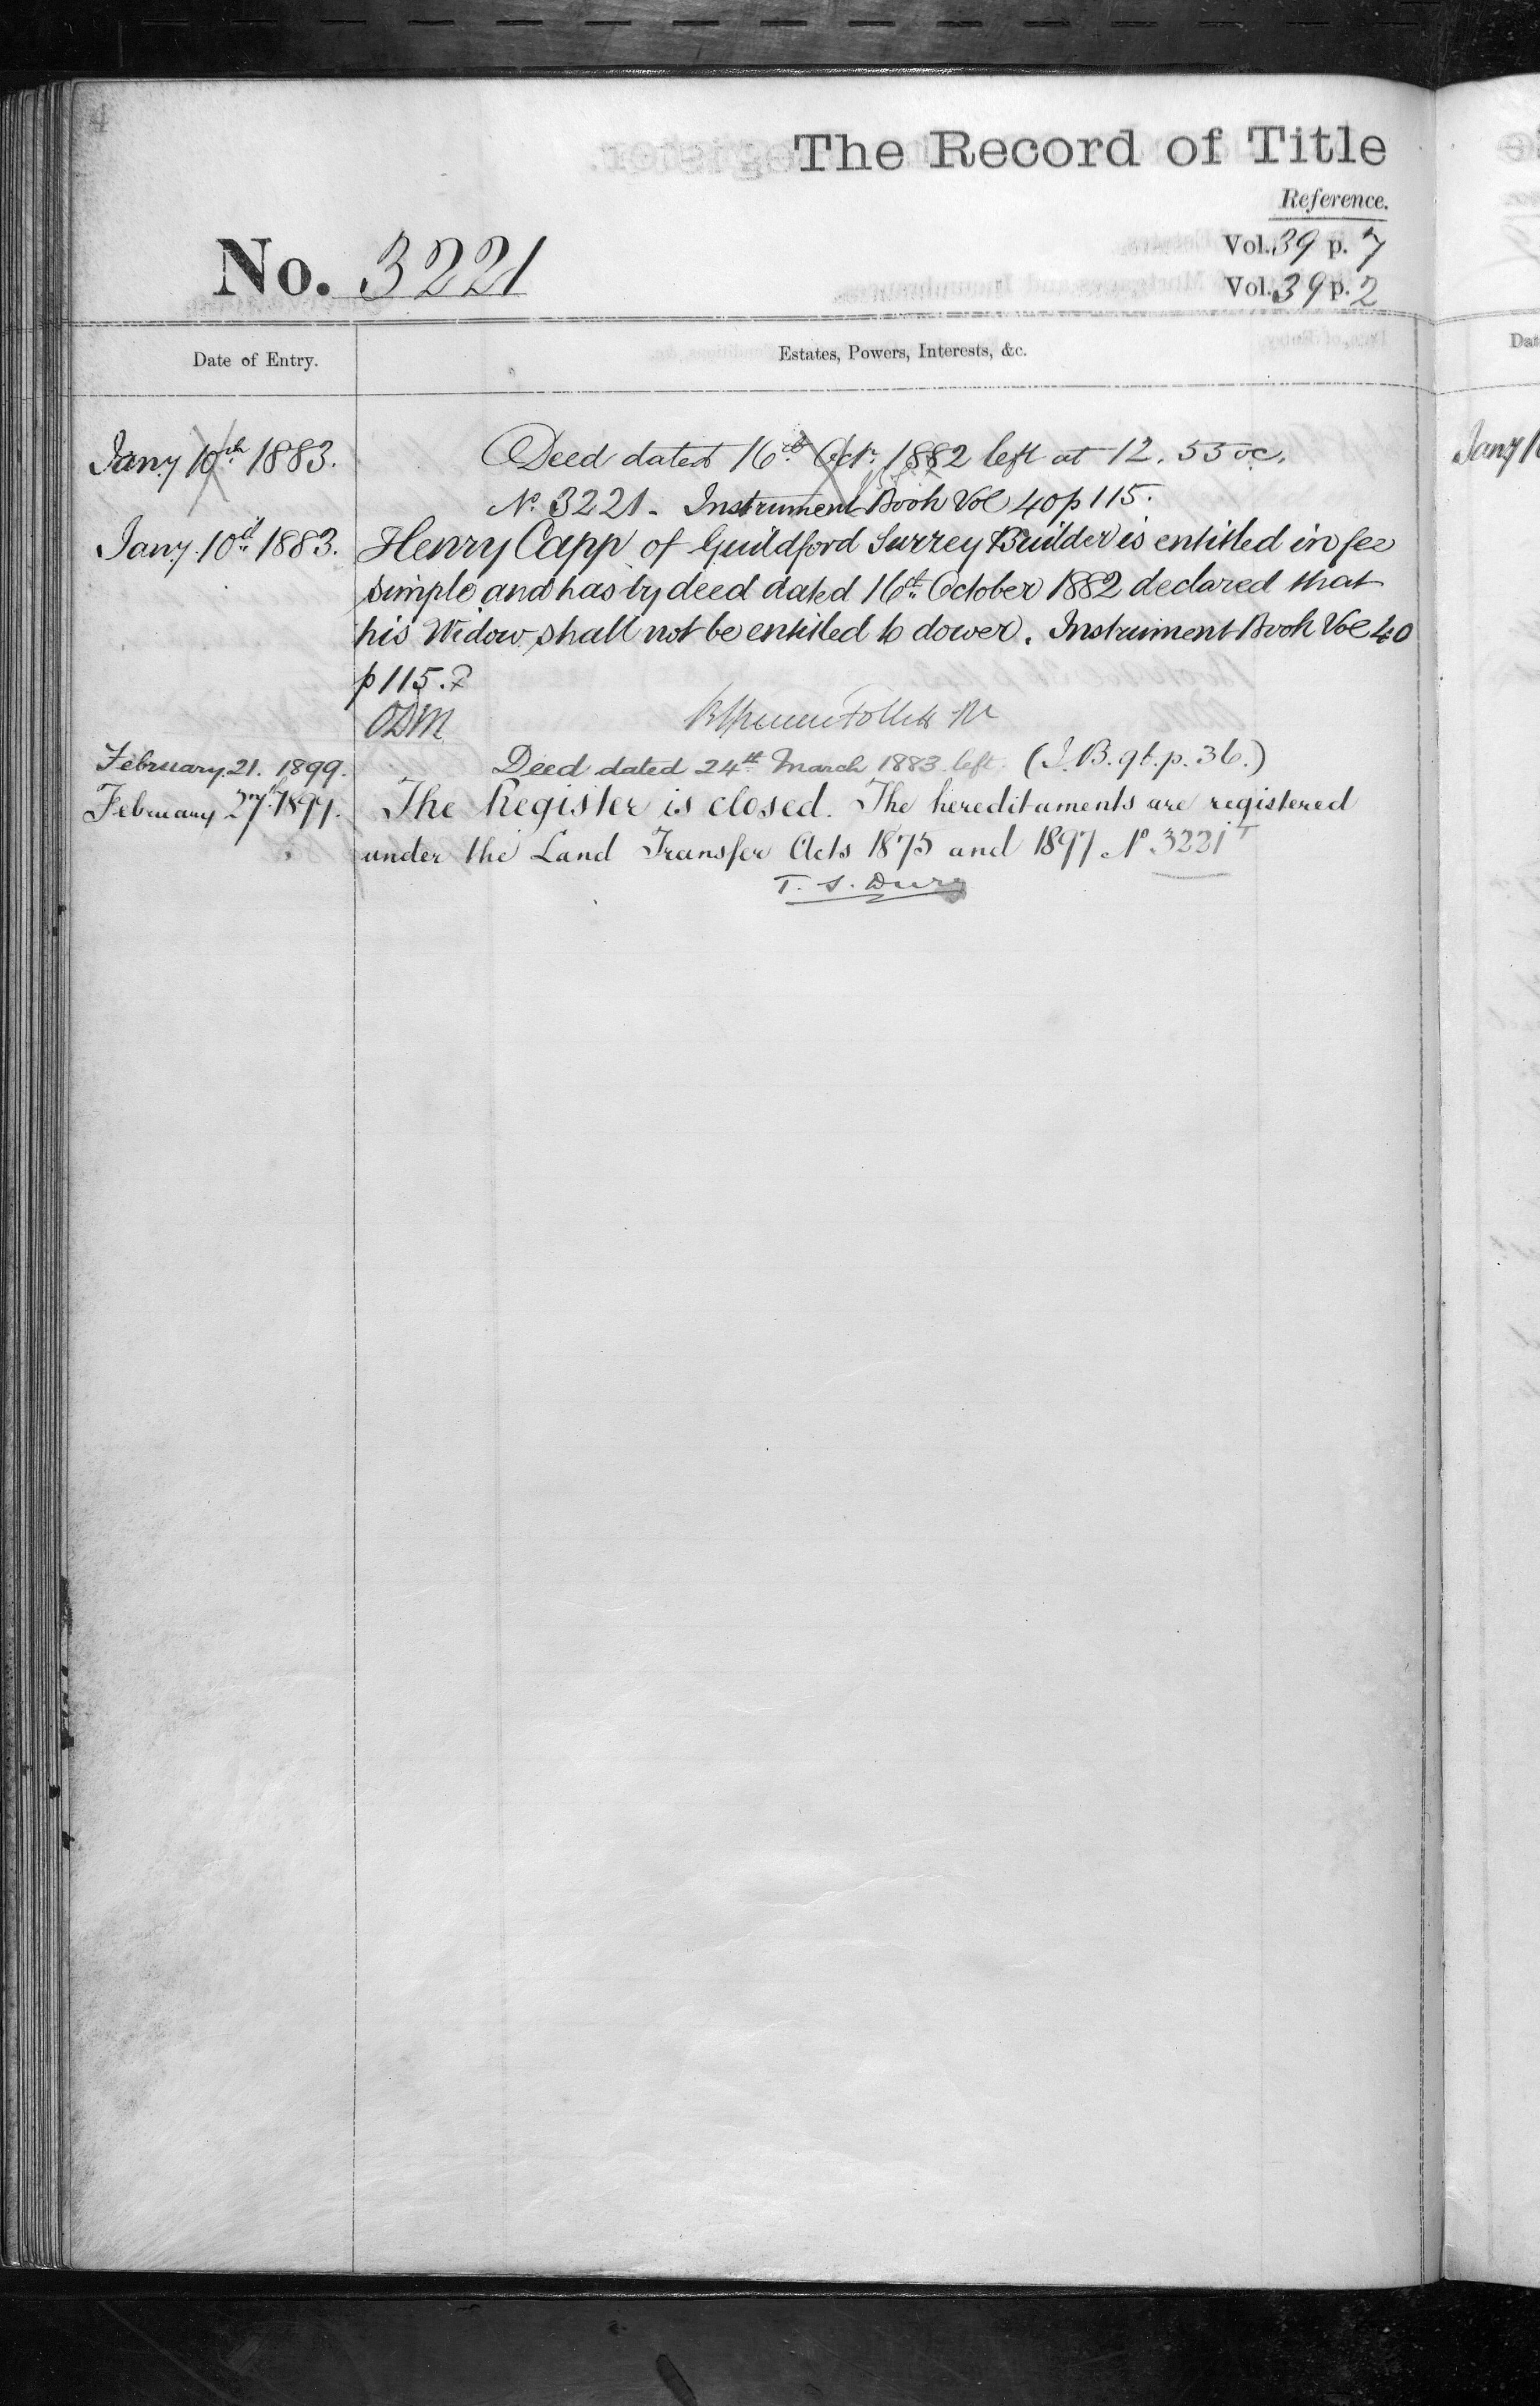 4
The Record of Title
Reference.
No. 3221
Vol. 39 p. 7
Vol. 39 p. 2
Date of Entry.
Estates, Powers, Interests, &c.
Jany. 10th 1883.
Deed dated 16th Octr. 1882 left at 12. 55 oc.
No. 3221 - Instrument Book Vol 40 p 115.
Jany. 10th 1883.
Henry Capp of Guildford Surrey Builder is entitled in fee
simple and has by deed dated 16th October 1882 declared that
his Widow shall not be entitled to dower. Instrument Book Vol 40
p 115.
ODM
February 21. 1899.
Deed dated 24th March 1883 left. (I.B. 9t. p. 36.)
February 27th 1899.
The Register is closed. The hereditaments are registered
under the Land Transfer Acts 1875 and 1897 No 3221T
T. S.
Jany 10